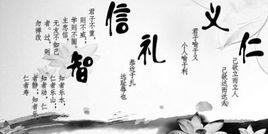 仁
己欲立而立人
己欲达而达人
义
君子喻于义
小人喻于利
礼
恭近于礼
远耻辱也
信
君子不重，
则不威；
学则不固。
主忠信，
无友不如己
者；过，则
勿惮改
智
知者乐水，
仁者乐山；